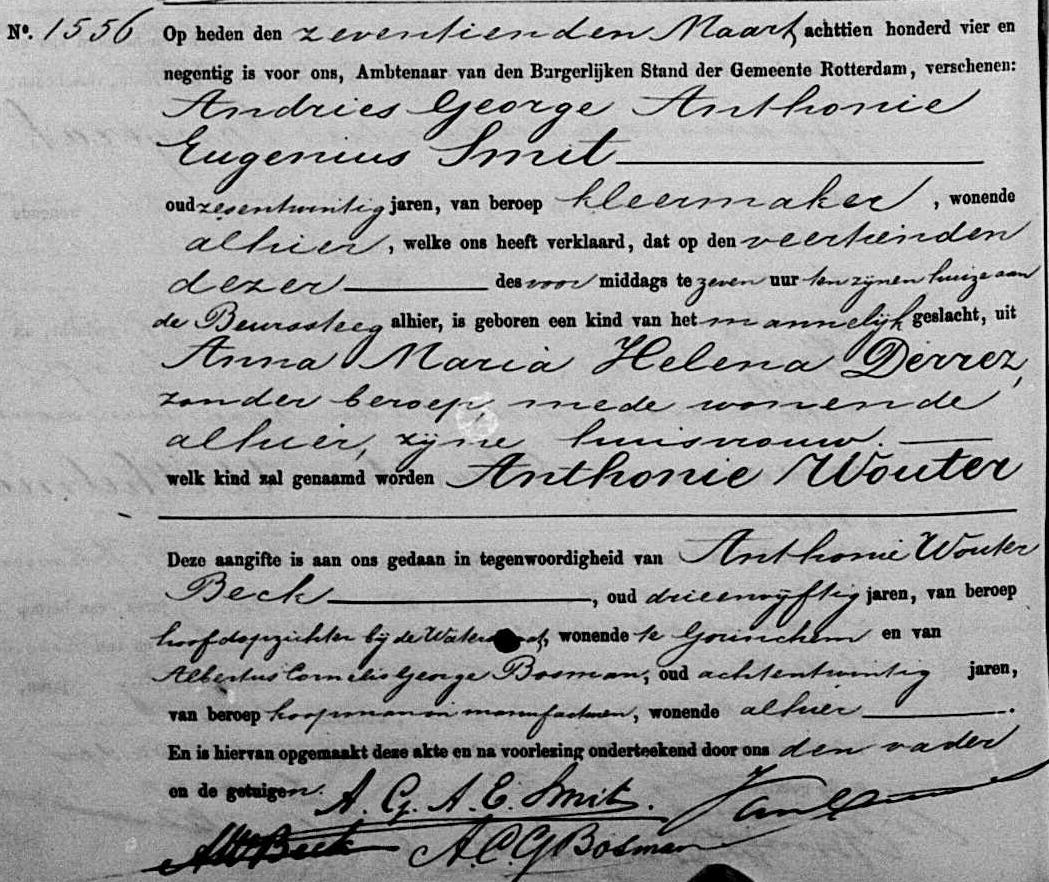 No. 1556 Op heden den zeventienden Maart, achttien honderd vier en
negentig is voor ons, Ambtenaar van den Burgerlijken Stand der Gemeente Rotterdam, verschenen:
Andries George Anthonie
Eugenius Smit
oud zesentwintig jaren, van beroep kleermaker, wonende
alhier, welke ons heeft verklaard, dat op den veertienden
dezer des voor middags te zeven uur ten zijnen huize aan
de Beurssteeg alhier, is geboren een kind van het mannelijk geslacht, uit
Anna Maria Helena Derrez,
zonder beroep, mede wonende
alhier, zijne huisvrouw.
welk kind zal genaamd worden Anthonie Wouter
Deze aangifte is aan ons gedaan in tegenwoordigheid van Anthonie Wouter
Beck, oud drieenvijftig jaren, van beroep
hoofdopzichter bij de Waterstaat, wonende te Gorinchem en van
Albertus Cornelis George Bosman, oud achtentwintig jaren,
van beroep koopman in manufacturen, wonende alhier.
En is hiervan opgemaakt deze akte en na voorlezing onderteekend door ons den vader
en de getuigen. A. G. A. E. Smit.
AWBeck A.C.G Bosman